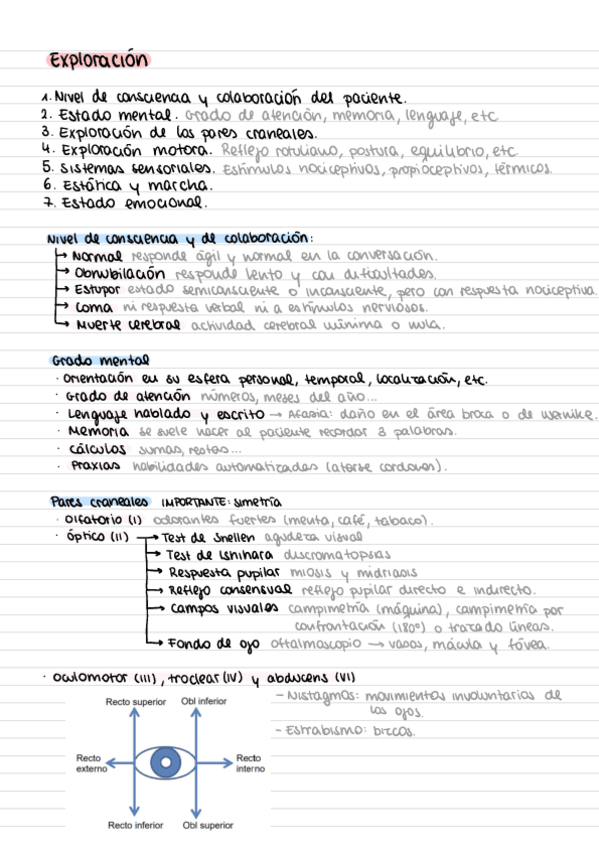 Exploración
1. Nivel de consciencia y colaboración del paciente.
2. Estado mental. Grado de atención, memoria, lenguaje, etc
3. Exploración de los pares craneales.
4. Exploración motora. Reflejo rotuliano, postura, equilibrio, etc
5. Sistemas sensoriales. Estímulos nociceptivos, propioceptivos, térmicos.
6. Estática y marcha.
7. Estado emocional.
Nivel de consciencia y de colaboración:
→ Normal responde ágil y normal en la conversación.
→ Obnubilación responde lento y con dificultades.
→ Estupor estado semiconsciente o inconsciente, pero con respuesta nociceptiva.
→ Coma ni respuesta verbal ni a estímulos nerviosos.
→ Muerte cerebral actividad cerebral mínima o nula.
Grado mental
· Orientación en su esfera personal, temporal, localización, etc.
· Grado de atención números, meses del año...
· Lenguaje hablado y escrito → Afasia: daño en el área broca o de wernike.
· Memoria se suele hacer al paciente recordar 3 palabras.
· Cálculos sumas, restas...
· Praxias habilidades automatizadas (atarse cordones).
Pares craneales IMPORTANTE: simetría
· Olfatorio (I) odorantes fuertes (menta, café, tabaco).
· óptico (II) → Test de Snellen agudeza visual
→ Test de Ishihara discromatopsias
→ Respuesta pupilar miosis y midriasis
→ Reflejo consensual reflejo pupilar directo e indirecto.
→ Campos visuales campimetría (máquina), campimetría por
confrontación (180º) o trazado líneas.
→ Fondo de ojo oftalmoscopio → vasos, mácula y fóvea.
· Oculomotor (III), troclear (IV) y abducens (VI)
- Nistagmos: movimientos involuntarios de
los ojos.
- Estrabismo: bizcos.
Recto superior Obl inferior
Recto externo Recto interno
Recto inferior Obl superior